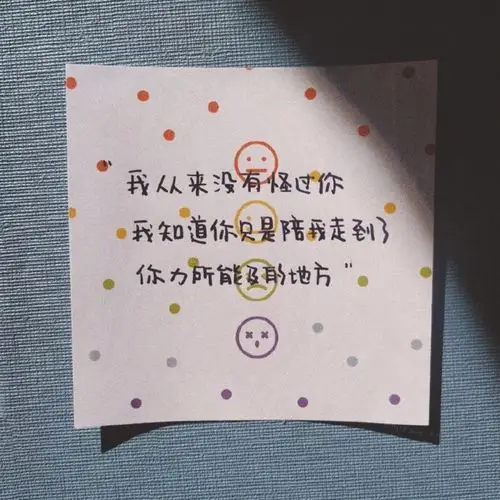 "我从来没有怪过你
我知道你只是陪我走到了
你力所能及的地方"